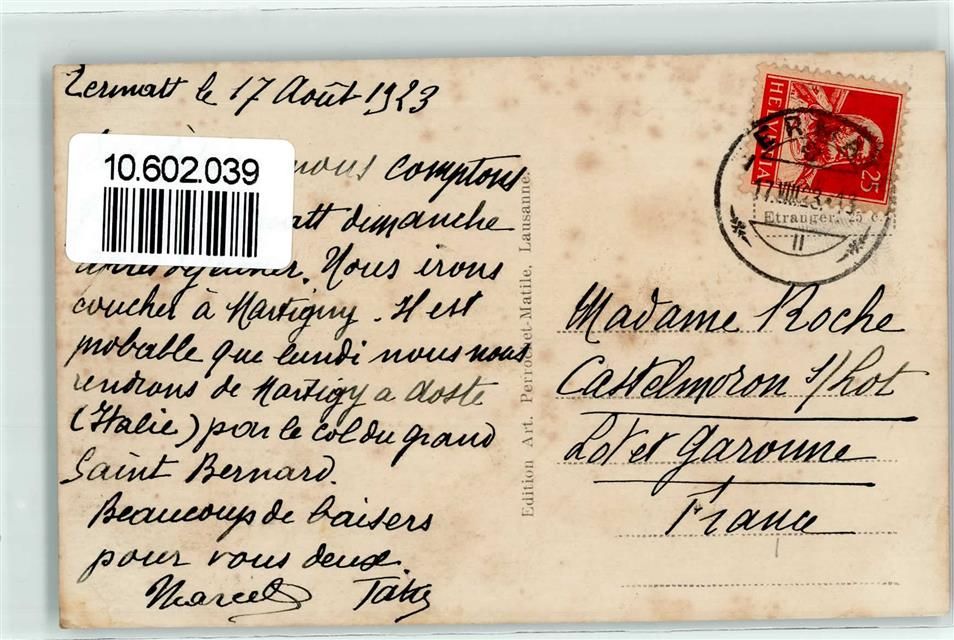 Zermatt le 17 Août 1923
10.602.039
nous comptons
dimanche
Nous irons
coucher à Martigny. Il est
probable que lundi nous nous
rendrons de Martigny a Aoste
(Italie) par le col du grand
Saint Bernard.
Beaucoup de baisers
pour vous deux.
Marcel
Edition Art. Perrochet-Matile, Lausanne.
HELVETIA
25
17.VIII.23.
Etranger. 25 c.
II
Madame Roche
Castelmoron s/Lot
Lot et Garonne
France